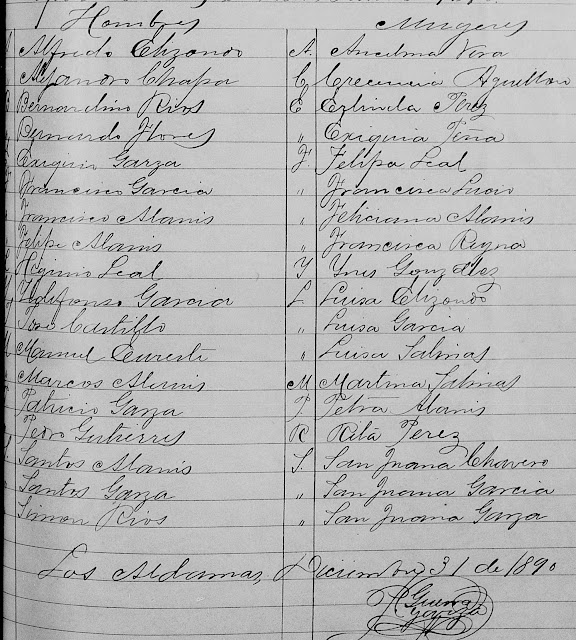 Hombres Mugeres
Alfredo Elizondo A. Ancelma Vera
Alejandro Chapa C Crecencia Aguillon
Bernardino Rios E Ezlinda Perez
Bernardo Flores " Exiquia Piña
Exiquio Garza F. Felipa Leal
Francisco Garcia " Francisca Lucio
Francisco Alanis " Feliciana Alanis
Felipe Alanis " Francisca Reyna
Higinio Leal Y Ynes Gonzalez
Yldifonso Garcia L Luisa Elizondo
Jose Castillo " Luisa Garcia
Manuel Cureste " Luisa Salinas
Marcos Alanis M Martina Salinas
Patricio Garza P Petra Alanis
Pedro Gutierres R Rita Perez
Santos Alanis S. San Juana Chavero
Santos Garza " San Juana Garcia
Simon Rios " San Juana Garza
Los Aldamas, Diciembre 31 de 1890
Guerra
Garza